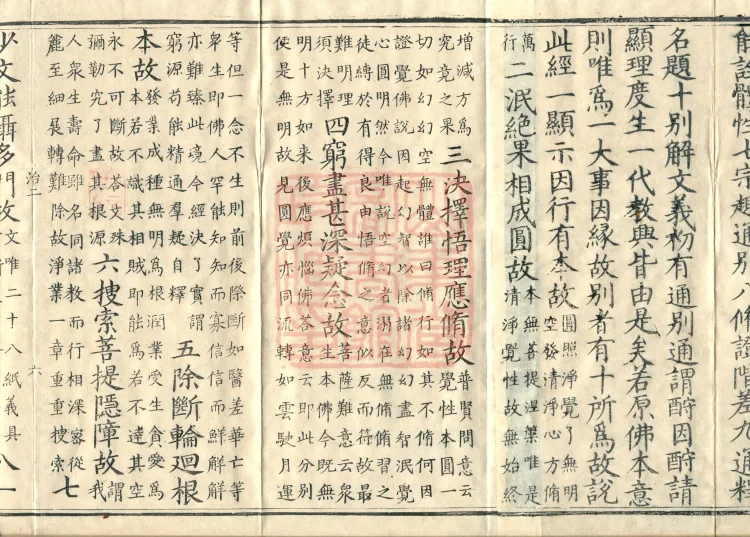 能詮體性七宗趣通別八脩證階差九通釋
名題十別解文義初有通別通謂酧因酧請
顯理度生一代教興皆由是矣若原佛本意
則唯爲一大事因緣故別者有十所爲故說
此經一顯示因行有本故圓照淨覺了無明
空發清淨心方脩
萬
行二泯絕果相成圓故本無菩提涅槃唯是
清淨覺性故無始終
增減方爲
究竟之果三決擇悟理應脩故普賢問意云
覺性本圓一
切如幻幻空無體誰曰脩行如其不脩何因
證覺佛說因起幻智以除諸幻幻盡智泯覺
心圓明然今唯說空幻者溺在無脩脩習之
徒縛於有得良由悟脩之意似反而符故最
難明理
須決擇四窮盡甚深疑念故菩薩難意云衆
生本佛今既無
明十方如來後應煩惱佛荅意云即此分別
使是無明故見圓覺亦同流轉如雲駛月運
等但一念不生則前後際斷如醫差華亡等
衆生即佛人罕能知知而寡信信而鮮解解
亦難臻此境今經決了實謂
窮源苟能精通羣疑自釋五除斷輪迴根
本故發業成種無明爲根潤業受生貪愛爲
本若不識其相賊即能爲若不達其空
永不可斷故荅文殊
彌勒究了盡其根源六捜索菩提隱障故謂
我
人衆生壽命雖名同諸教而行相深密從
麤至細展轉難除故淨業一章重重捜索七
治二 六
少文能攝多門故文唯二十八紙義具